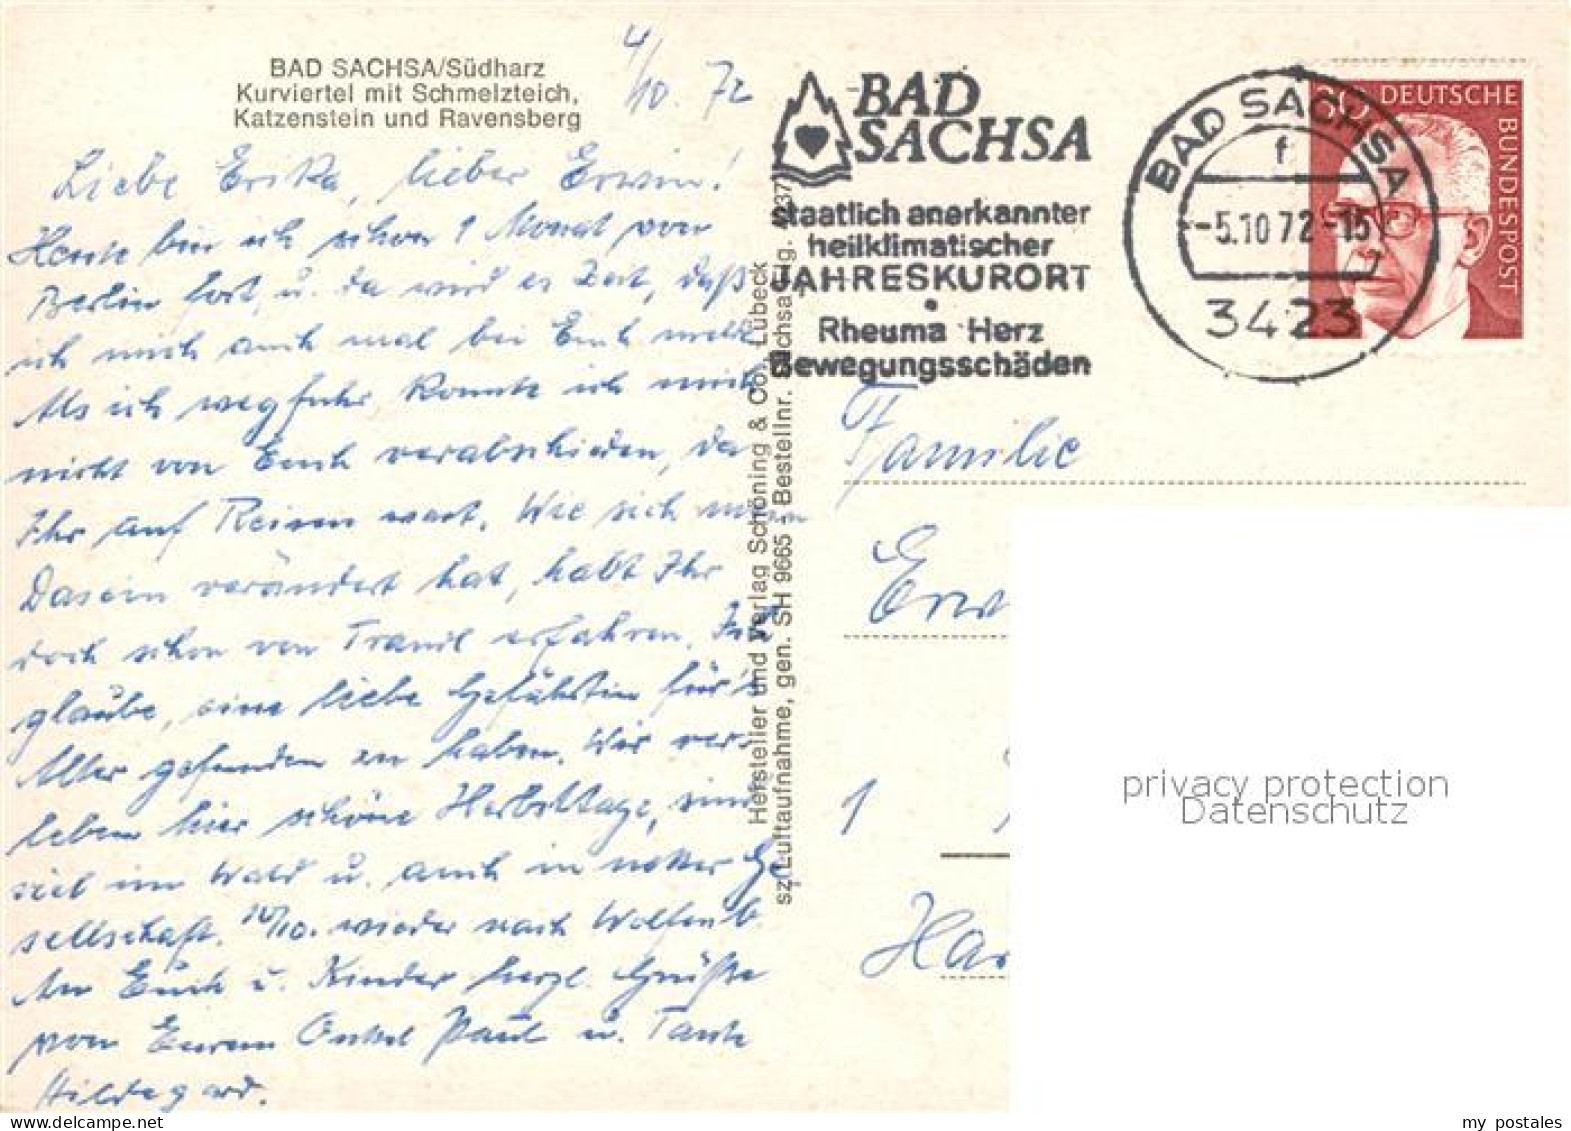 4/10. 72
BAD SACHSA/Südharz
Kurviertel mit Schmelzteich,
Katzenstein und Ravensberg
Liebe Erika, lieber Erwin!
Heute bin ich schon 1 Monat von
Berlin fort, u. da wird es Zeit, daß
ich mich auch mal bei Euch melde
Als ich wegfuhr konnte ich mich
nicht von Euch verabschieden, da
Ihr auf Reisen wart. Wie sich mein
Dasein verändert hat, habt Ihr
doch schon von Traudl erfahren. Ich
glaube, eine liebe Gefährtin für's
Alter gefunden zu haben. Wir ver-
leben hier schöne Herbsttage, sind
viel im Wald u. auch in netter Ge
sellschaft. 10/10. wieder nach Wolfenb.
An Euch u. Kinder herzl. Grüße
von Eurem Onkel Paul u. Tante
Hildegard.
Hersteller und Verlag Schöning & Co., Lübeck
sz/Luftaufnahme, gen. SH 9665 - Bestellnr.
BAD
SACHSA
staatlich anerkannter
heilklimatischer
JAHRESKURORT
Rheuma Herz
Bewegungsschäden
BAD SACHSA
f
-5.10.72-15
3423
30 DEUTSCHE
BUNDESPOST
Familie
Erw
1
Har
privacy protection
Datenschutz
my postales